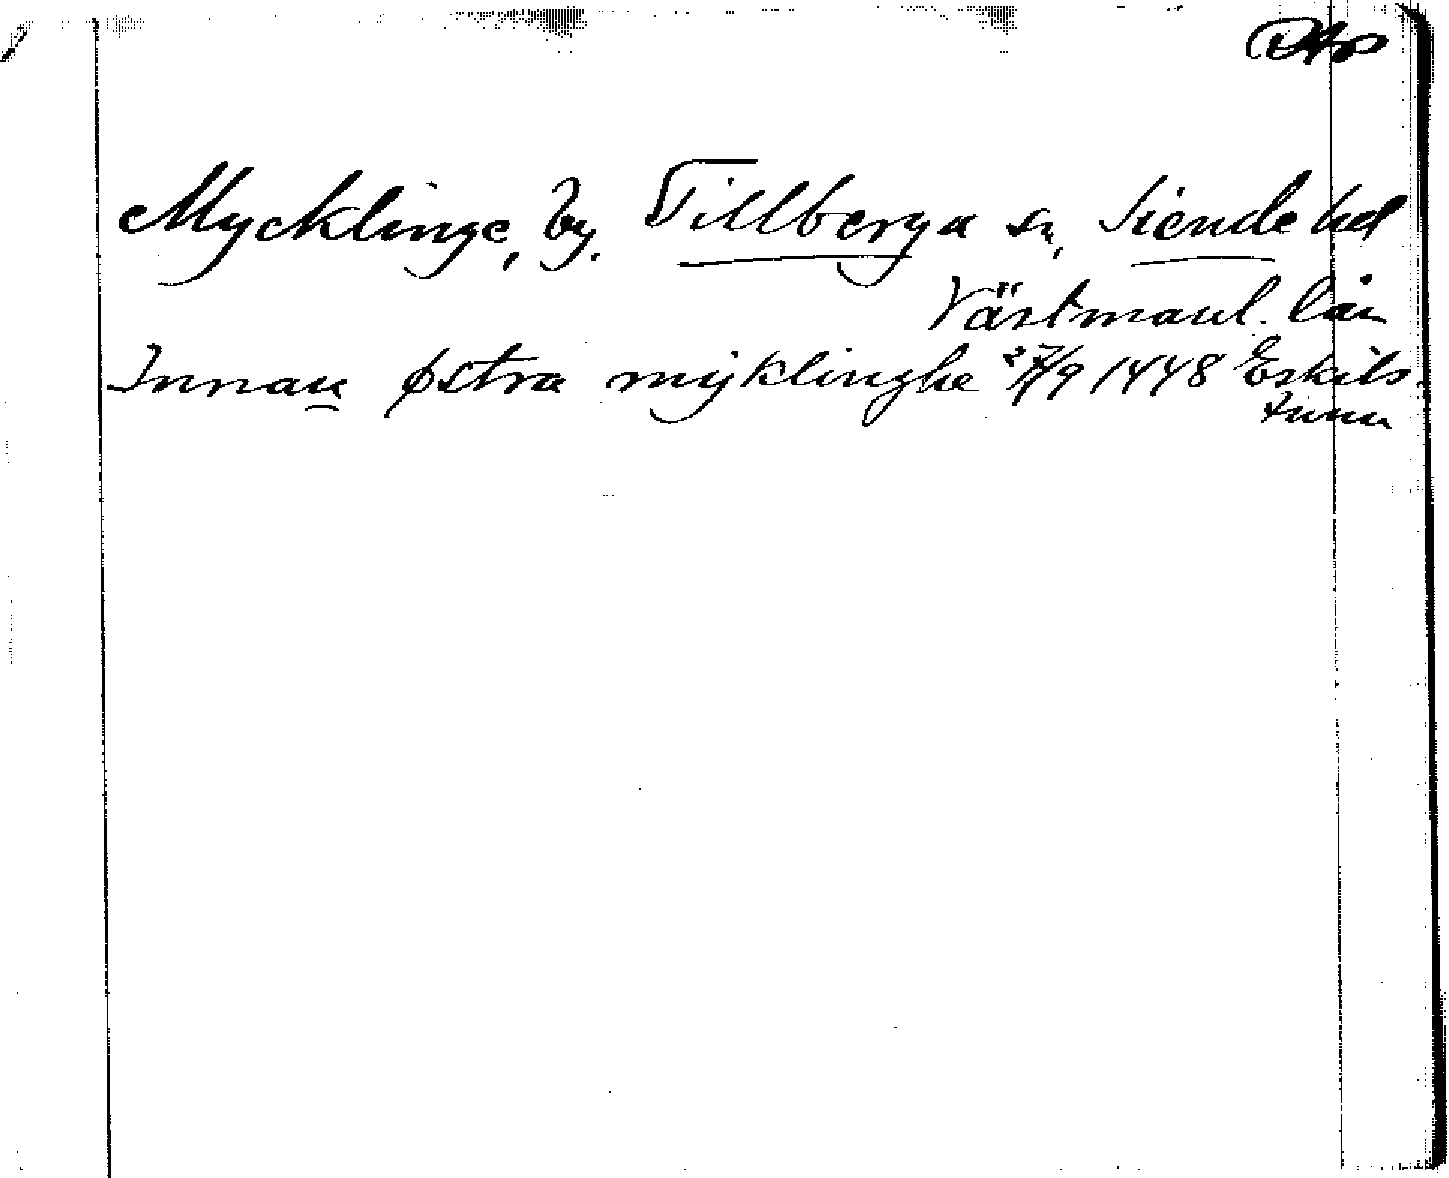 Mycklinge, by. Tillberga sn, Siende hd
Västmanl. län
Innan østra myklinghe 27/9 1448 Eskils-
tuna